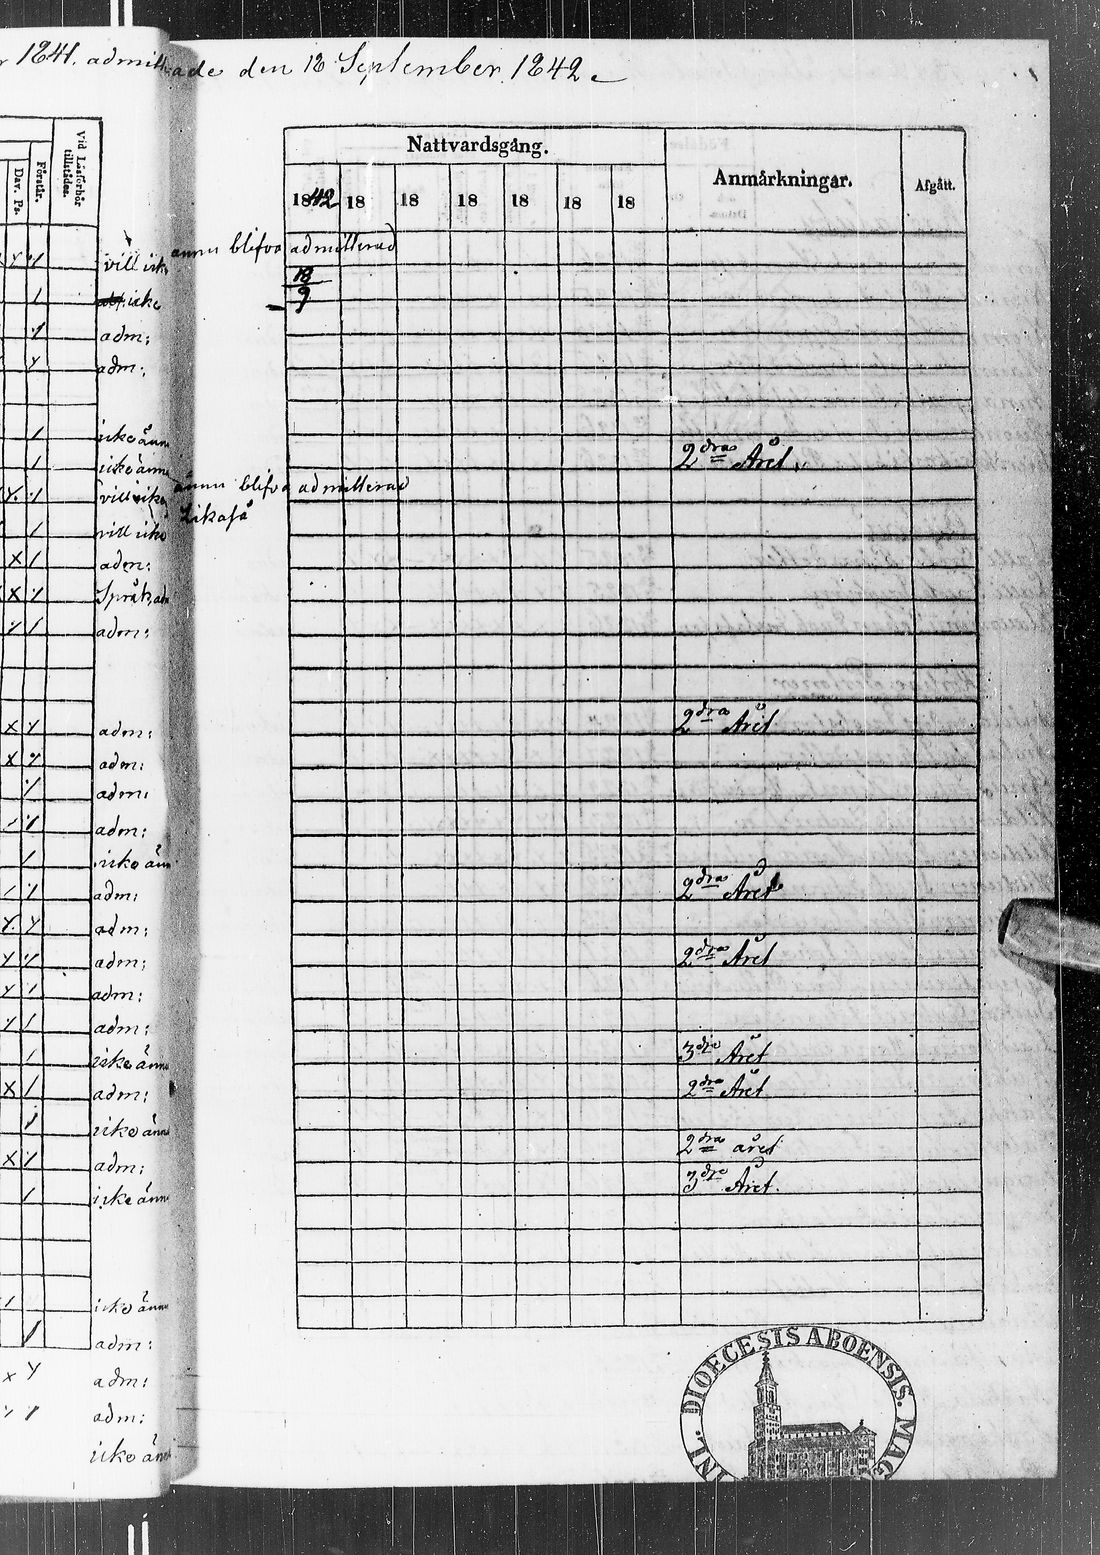 1841. admitterade den 18 September 1842
Vid Läsförhör tillstädes.
Förstår.
Dav. Ps.
Nattvardsgång.
Anmärkningar.
Afgått.
1842 18 18 18 18 18 18
vill icke ännu blifva admitterad
18/9
icke
adm:
adm:
icke ännu
icke ännu
2dra Året
vill icke ännu blifva admitterad
vill icke Likaså
adm:
Språk
adm:
adm: 2dra Året
adm:
adm:
adm:
icke änn
adm: 2dra Året
adm:
adm: 2dra Året
adm:
adm:
icke änn 3dje Året
adm: 2dra Året
icke änn
2dra året
adm: 3dje Året
icke änn
icke änn
adm:
adm:
adm:
icke än
DIOECESIS ABOENSIS. MAG
INL.